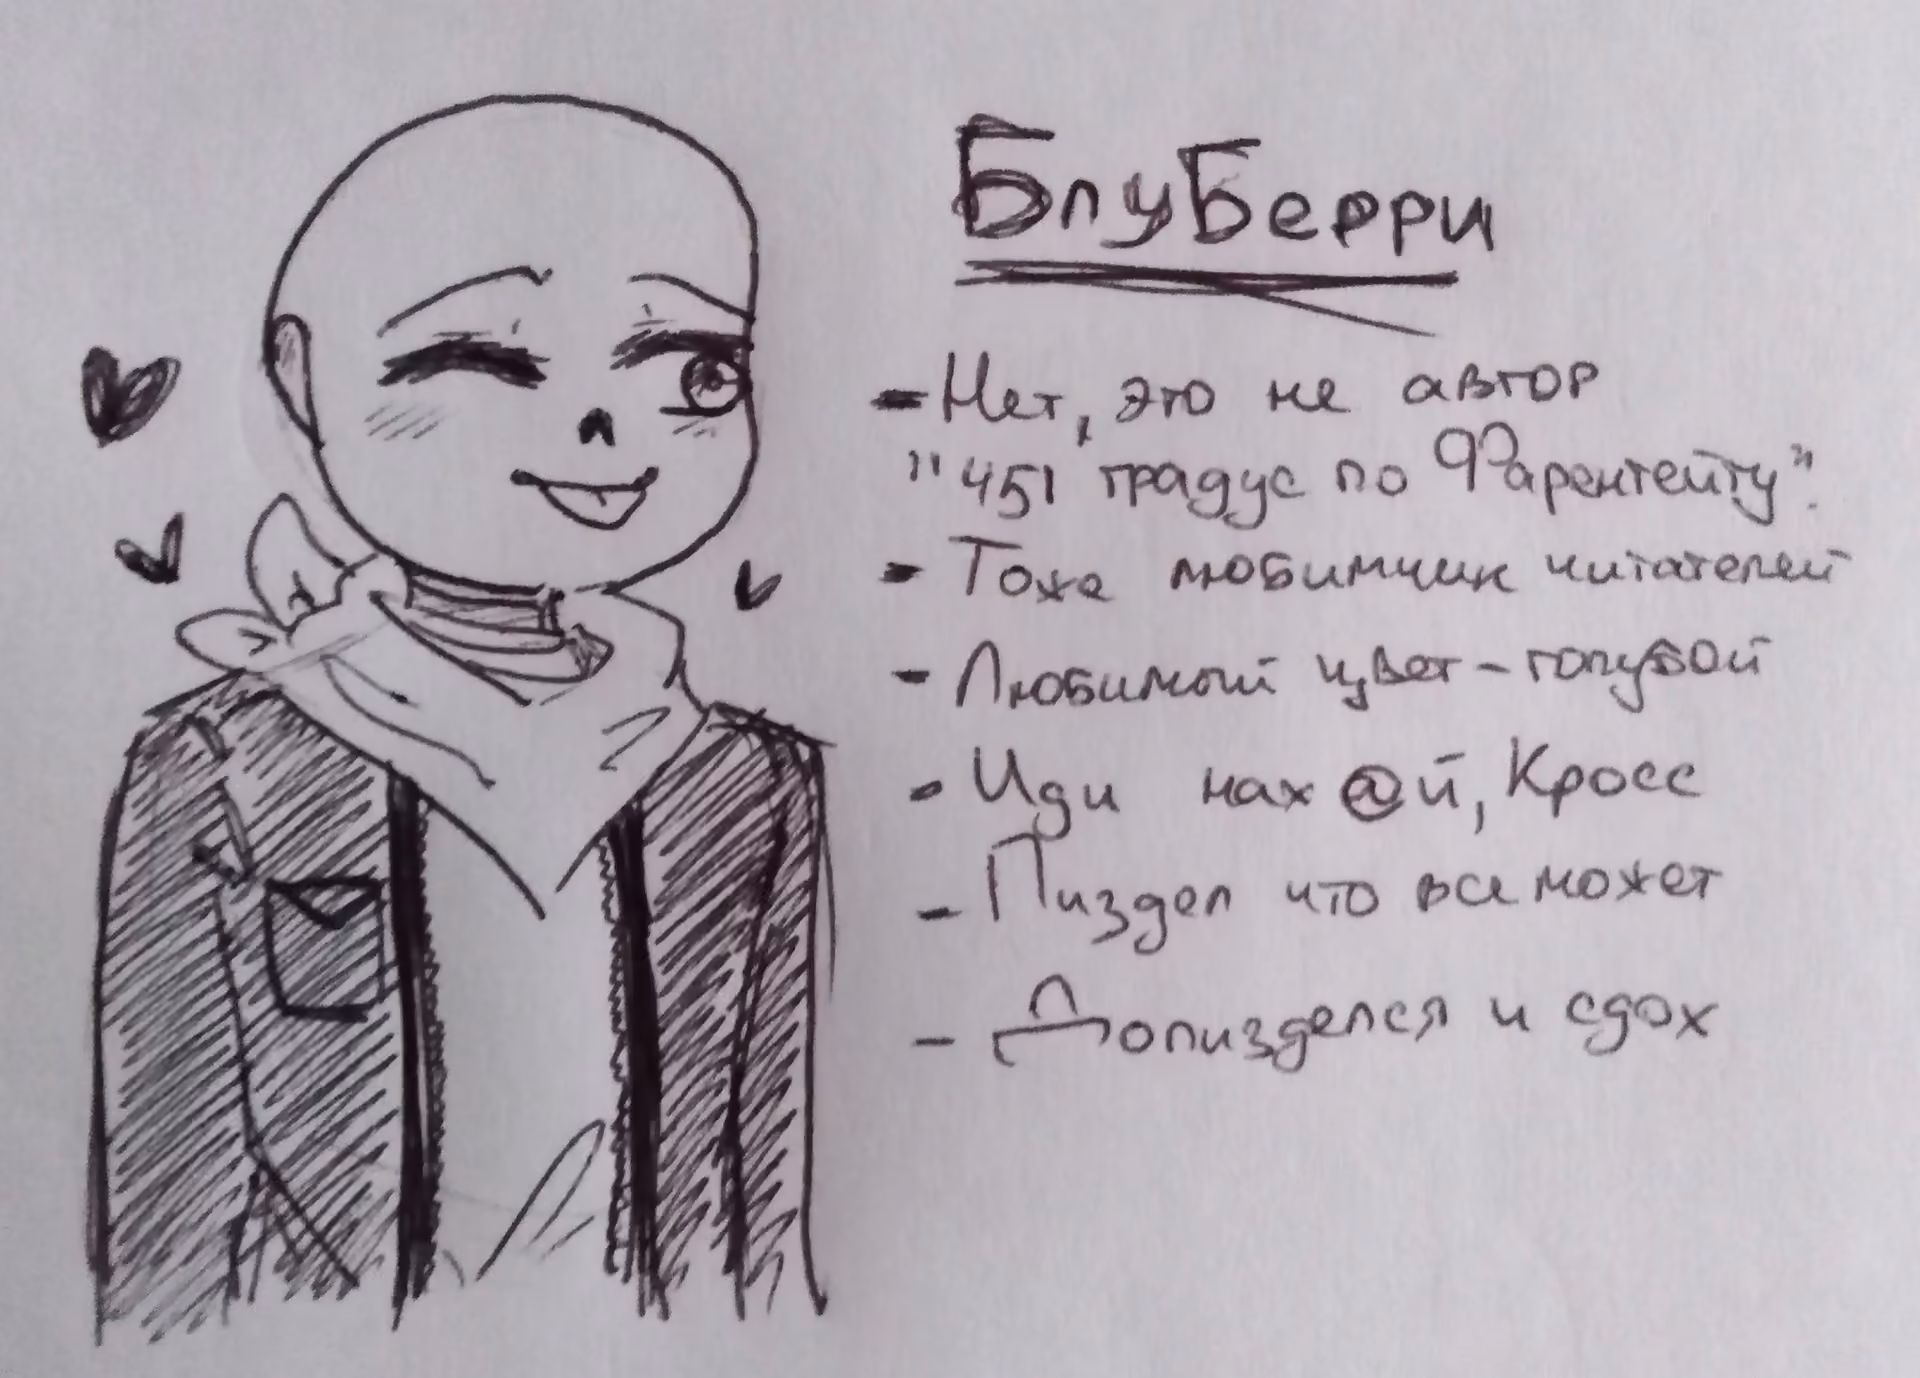 БлуБерри
- Нет, это не автор
"451 градус по Фарентейту".
- Тоже любимчик читателей
- Любимый цвет - голубой
- Иди нах@й, Кросс
- Пиздел что все может
- Допизделся и сдох